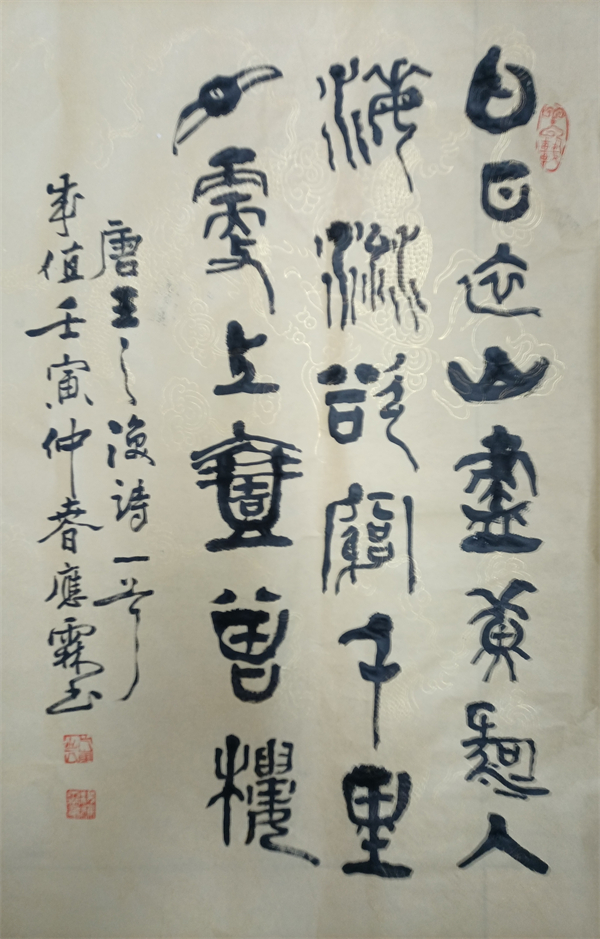 白日依山盡黃河入
海流欲窮千里
目更上壹曾樓
唐王之渙詩一首
歲值壬寅仲春應霖书